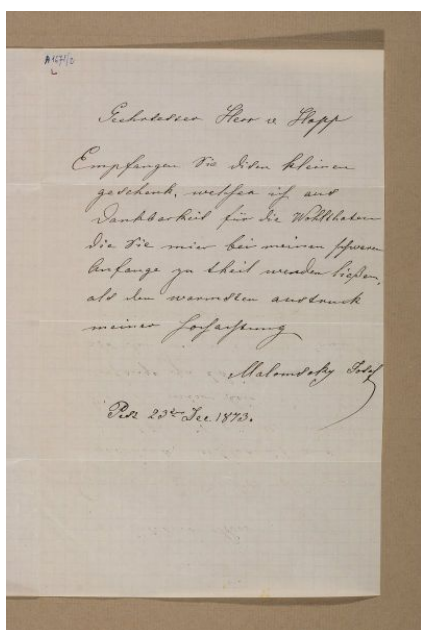 A 1671/2
Geehrtester Herr v Hopp
Empfangen Sie disen kleinen
geschenk, welchen ich aus
Dankbarkeit für die Wohlthaten
die Sie mier bei meinen schweren
Anfange zu theil werden ließen,
als den warmsten austruck
meiner Hochachtung
Malomsoky Josef
Pest 23ten Dec 1873.